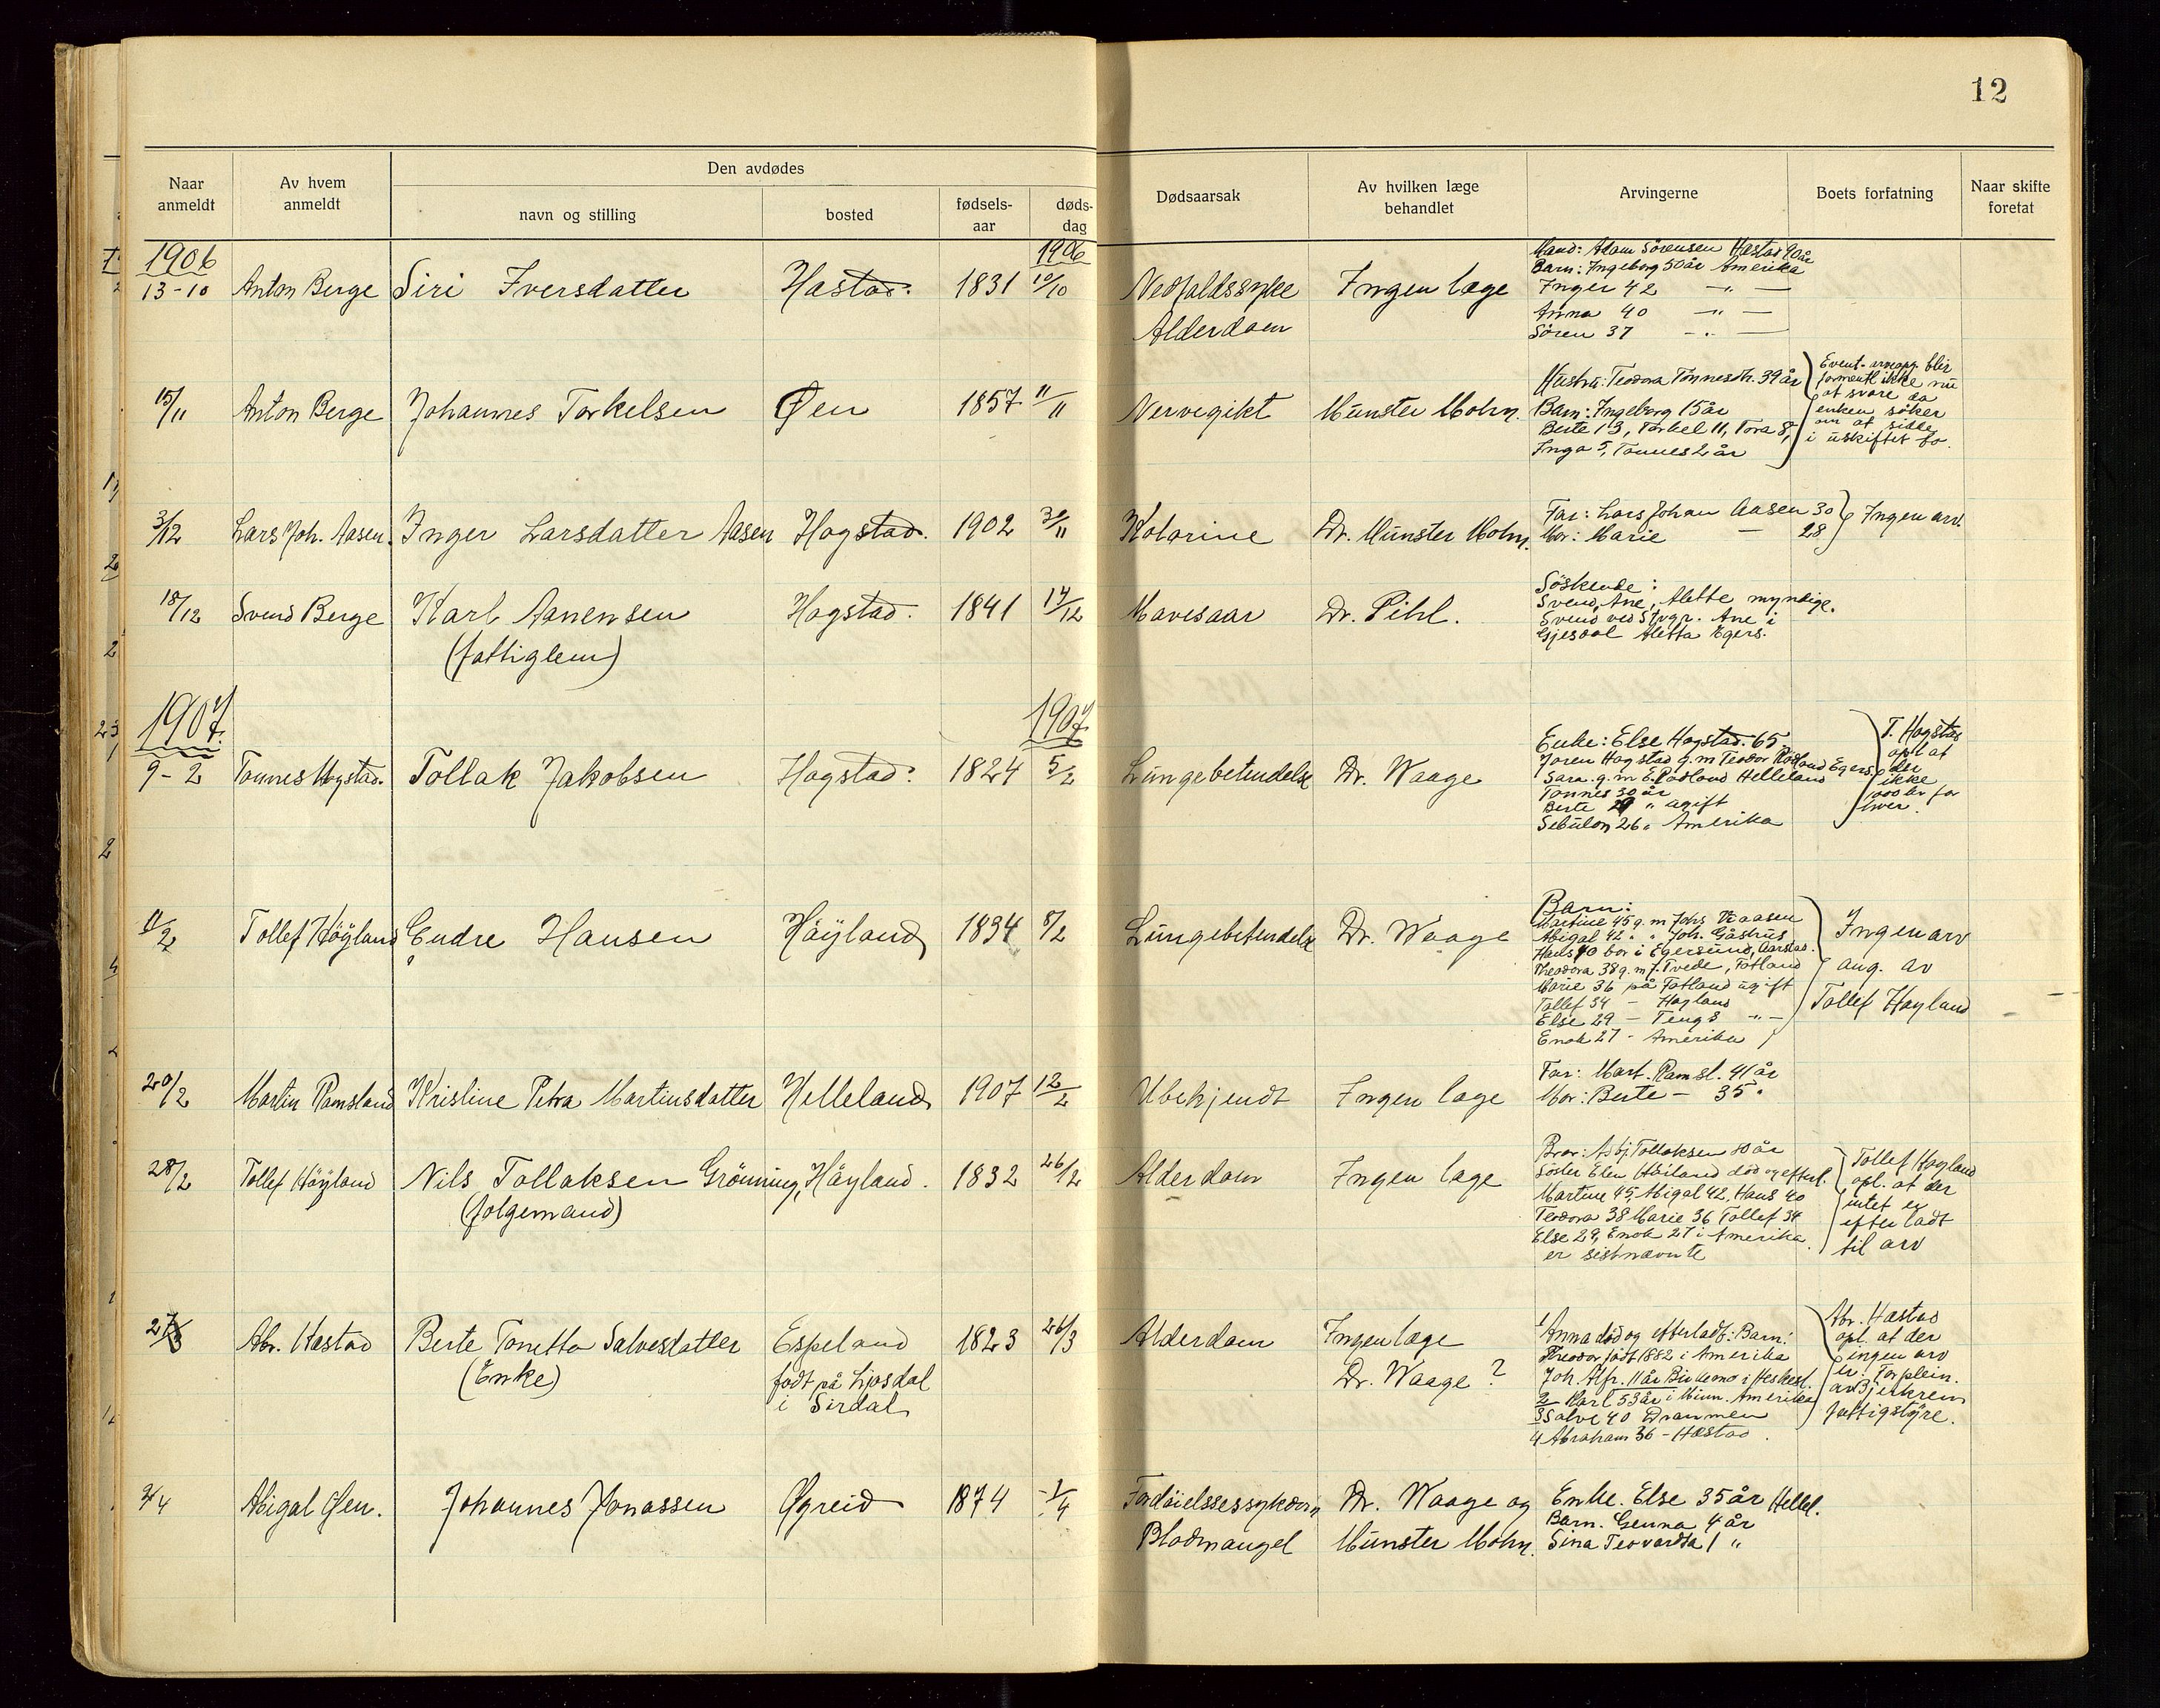 12
Naar anmeldt
Av hvem anmeldt
Den avdødes
navn og stilling
bosted
fødsels-aar
døds-dag
Dødsaarsak
Av hvilken læge behandlet
Arvingerne
Boets forfatning
Naar skifte foretat
1906
1906
13-10 Anton Berge Siri Iversdatter Hæstad. 1831 10/10 Nedfaldssyke Ingen læge
Alderdom
Mand: Adam Sörensen Hæstad 90 år
Barn: Ingeborg 50 år Amerika
Inger 42 -"-
Anna 40 -"-
Sören 37 -"-
15/11 Anton Berge Johannes Torkelsen Øen 1857 11/11 Nervegikt Münster Mohn.
Hustru: Teodora Tönnesdtr. 39 år
Barn: Ingeborg 15 år
Berte 13, Torkel 11, Tora 8,
Inga 5, Tönnes 2 år
Event. arveopg. blir
forment. ikke nu
at svare da
enken söker
om at sidde
i uskiftet bo.
3/12 Lars Joh. Aasen. Inger Larsdatter Aasen Hogstad. 1902 30/11 Kolorine Dr. Münster Mohn.
Far: Lars Johan Aasen 30
Mor: Marie — 28
Ingen arv.
18/12 Svend Berge Karl Aanensen Hogstad. 1841 14/12 Mavesaar Dr. Pihl.
(fattiglem)
Söskende:
Svend, Ane, Alette myndige.
Svend ved Stvgr. Ane i
Gjesdal Aletta Egers.
1907.
1907.
9-2 Tönnes Hogstad. Tollak Jakobsen Hogstad. 1824 5/2 Lungebetendelse Dr. Waage
Enke: Else Hogstad. 65
Joren Hogstad g.m Teodor Rödland Egers.
Sara. g.m E. Rodland Helleland
Tönnes 30 år
Berte 29 " ugift
Sebulon 26 " Amerika
T. Hogstad
opl. at
der
ikke
1000 kr for
hver.
11/2 Tollef Höyland Endre Hansen Höyland 1834 8/2 Lungebetendelse Dr. Waage
Barn:
Martine 45 g.m Johs Braasen
Abigal 42 " " Joh. Gåshus
Hans 40 bor i Egersund, Aarstad.
Theodora 38 g.m J. Tvede, Fotland
Marie 36 på Fotland ugift
Tollef 34 - Høyland
Else 29 - Tengs -"-
Enok 27 - Amerika
Ingen arv
ang. av
Tollef Høyland
20/2 Martin Ramsland Kristine Petra Martinsdatter Helleland 1907 12/2 Ubekjendt Ingen læge
Far: Mart. Ramsl. 41 år
Mor: Berte - 35 "
28/2 Tollef Höyland Nils Tollaksen Grönning, Höyland. 1832 26/2 Alderdom Ingen læge
(folgemand)
Bror: Asbj. Tollaksen 80 år
Söster Elen Höiland död og efterl.
Martine 45, Abigal 42, Hans 40
Teodora 38 Marie 36 Tollef 34
Else 29, Enok 27 i Amerika
er sistnævnte
Tollef Høyland
opl. at der
intet er
efterladt
til arv
27/3 Abr. Hæstad Berte Tonette Salvesdatter Espeland 1823 26/3 Alderdom Ingen læge
(Enke) født på Ljosdal Dr. Waage ?
i Sirdal
1 Anna död og efterladt: Barn:
Theodor født 1882 i Amerika
Joh. Alfr. 11 år Birkemo i Heskest.
2 Karl 53 år i Minn. Amerika
3 Salve 40 Drammen
4 Abraham 36 - Hæstad.
Abr. Hæstad
opl. at der
ingen arv
er. Forplein.
av Bjerkreim
fattigstyre.
2/4 Abigal Øen. Johannes Jonassen Øgreid 1874 1/4 Fordøielsessykdom Dr. Waage og
Blodmangel Münster Mohn.
Enke. Else 35 år Hellel.
Barn. Genna 4 år
Sina Teovardta 1 "